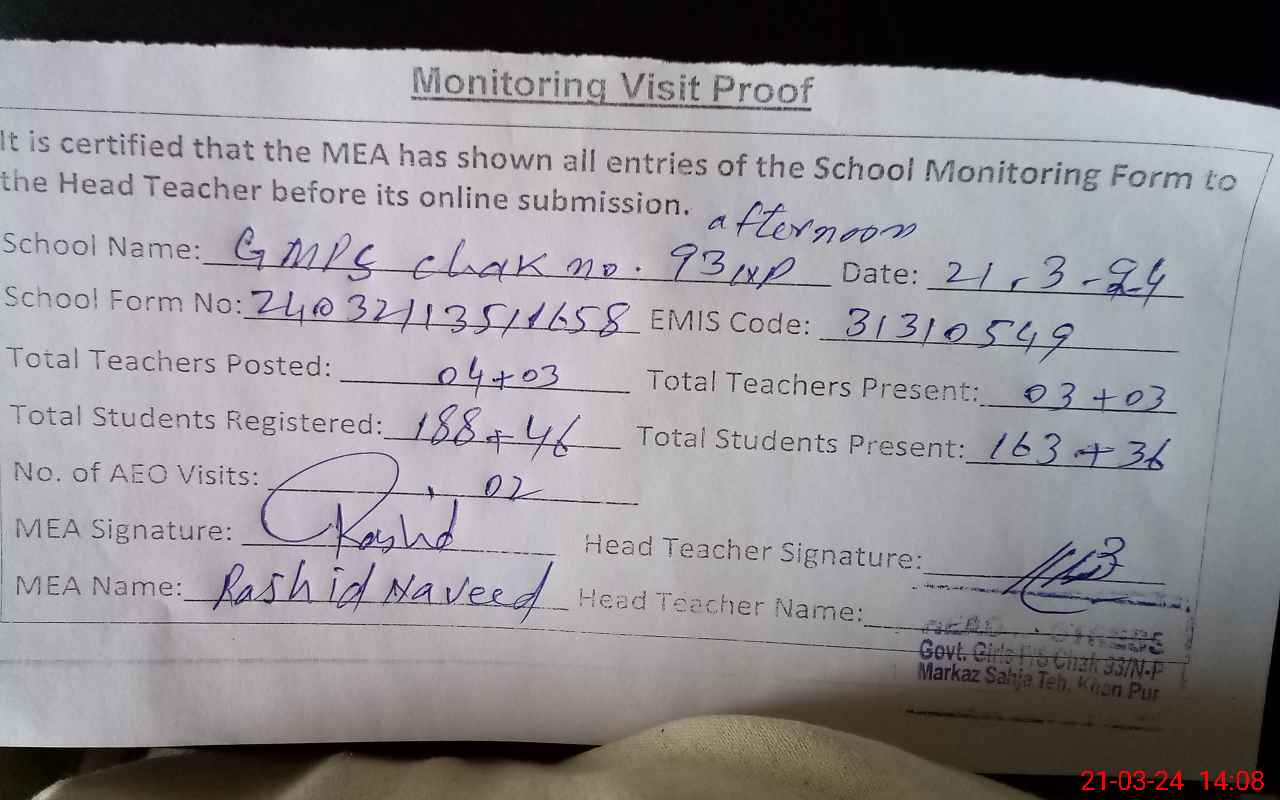 Monitoring Visit Proof
It is certified that the MEA has shown all entries of the School Monitoring Form to
the Head Teacher before its online submission.
afternoon
School Name: GMPS chak no. 93/NP Date: 21.3-24
School Form No: 24032113511658 EMIS Code: 31310549
Total Teachers Posted: 04+03 Total Teachers Present: 03+03
Total Students Registered: 188+46 Total Students Present: 163+36
No. of AEO Visits: 02
MEA Signature: Rashid Head Teacher Signature:
MEA Name: Rashid Naveed Head Teacher Name:
Govt. Girls P/S Chak 93/N-P
Markaz Sahja Teh. Khan Pur
21-03-24 14:08